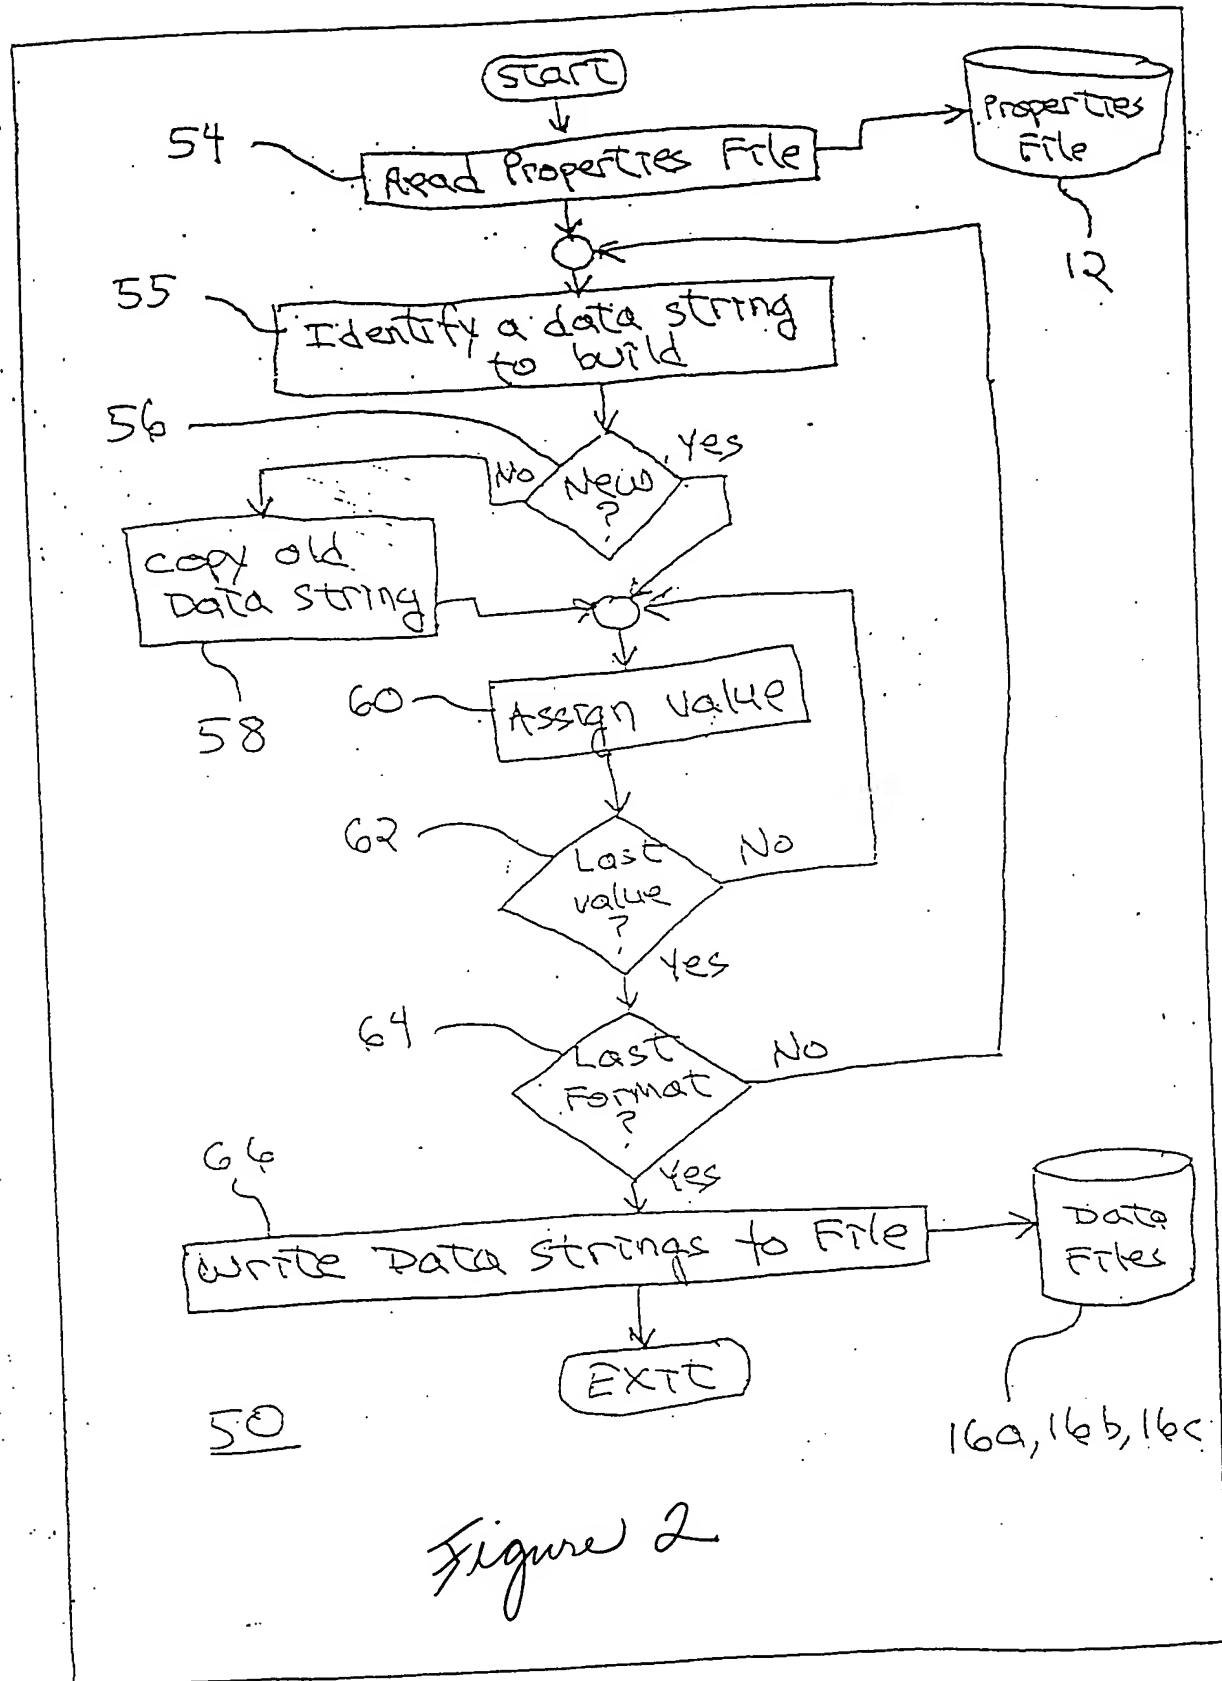 Start
Properties
File
54
Read Properties File
12
55
Identify a data string
to build
56
Yes
No
New
?
Copy old
Data String
58
60
Assign Value
62
Last
value
?
No
Yes
64
Last
Format
?
No
Yes
66
Write Data Strings to File
Data
Files
EXIT
50
16a, 16b, 16c
Figure 2